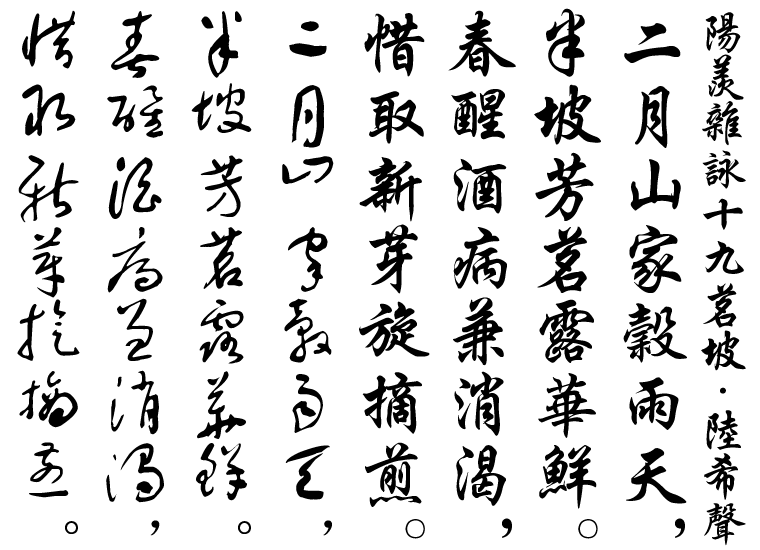 陽羨雜詠十九茗坡·陸希聲
二月山家穀雨天，
半坡芳茗露華鮮。
春醒酒病兼消渴，
惜取新芽旋摘煎。
二月山家穀雨天，
半坡芳茗露華鮮。
春醒酒病兼消渴，
惜取新芽旋摘煎。